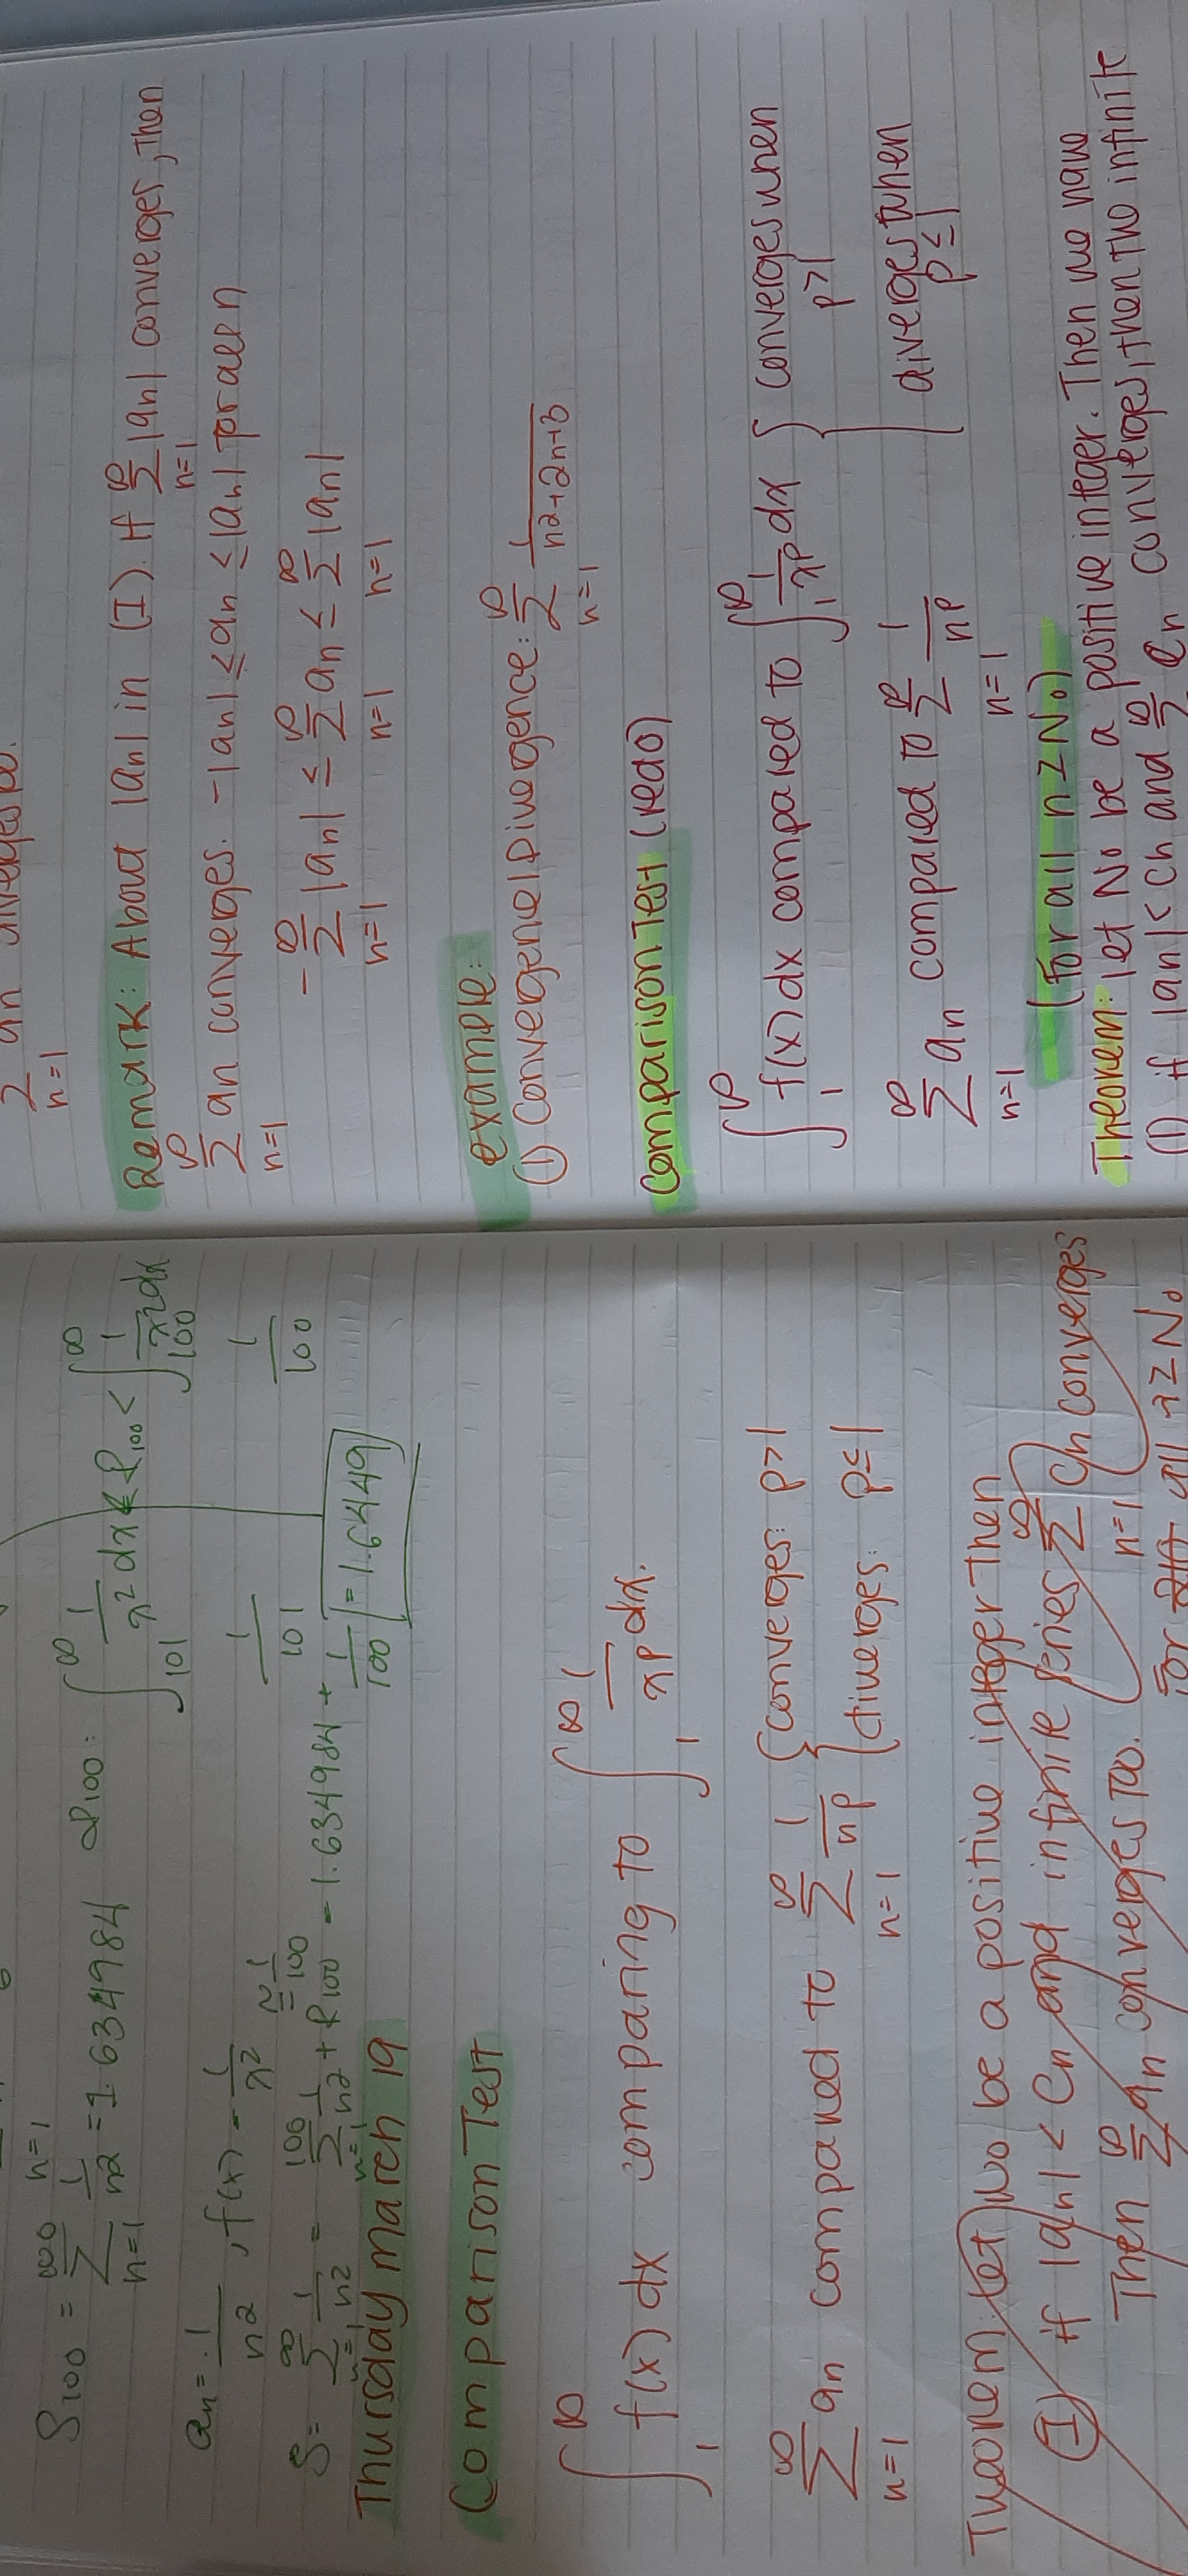 n=1
S100 = ∞ Σ n=1 1/n2 = 1.634984 R100: ∫ 101 ∞ 1/x2 dx < R100 < ∫ 100 ∞ 1/x2 dx
an = 1/n2, f(x) = 1/x2 1/101 1/100
≅ 1/100
S = ∞ Σ n=1 1/n2 = 100 Σ n=1 1/n2 + R100 = 1.634984 + 1/100 = 1.6449
Thursday march 19
Comparison Test
∫ 1 ∞ f(x) dx comparing to ∫ 1 ∞ 1/xp dx.
∞ Σ n=1 an compared to ∞ Σ n=1 1/np { converges: p>1
diverges: p≤1
Theorem: let No be a positive integer then
(I) if |an| < Cn and infinite series ∞ Σ n=1 Cn converges
Then ∞ Σ an converges too.
for all n≥No
Σ n=1 an diverges too.
Remark: About |an| in (I). If ∞ Σ n=1 |an| converges, then
∞ Σ n=1 an converges. -|an| ≤ an ≤ |an| for all n
- ∞ Σ n=1 |an| ≤ ∞ Σ n=1 an ≤ ∞ Σ n=1 |an|
example:
① Convergence/Divergence: ∞ Σ n=1 1/n2+2n+3
Comparison Test (redo)
∫ 1 ∞ f(x) dx compared to ∫ 1 ∞ 1/xp dx { converges when
p>1
∞ Σ n=1 an compared to ∞ Σ n=1 1/np diverges when
p≤1
(for all n≥No)
Theorem: let No be a positive integer. Then we have
(I) if |an| < Cn and ∞ Σ Cn converges, then the infinite